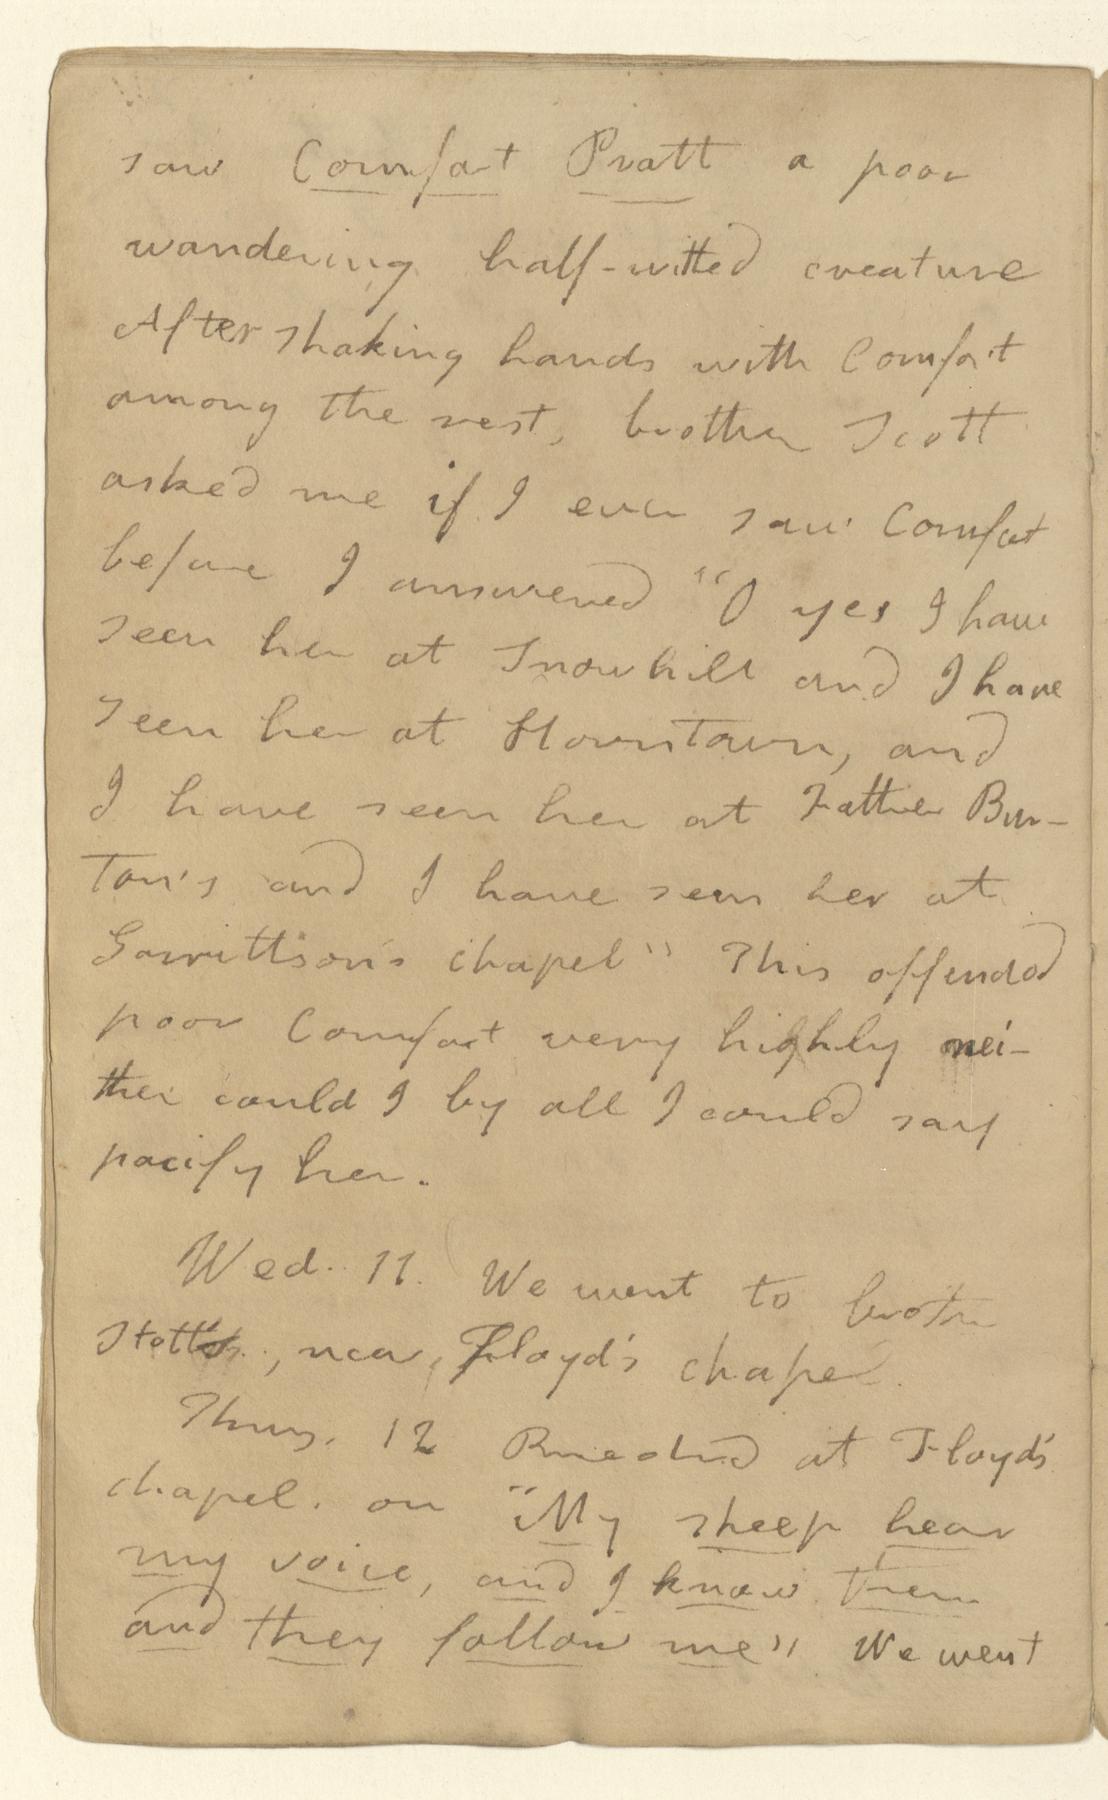 saw Comfort Pratt a poor
wandering half-witted creature
After shaking hands with Comfort
among the rest, brother Scott
asked me if I ever saw Comfort
before I answered "O yes I have
seen her at Snowhill and I have
seen her at Horntown, and
I have seen her at Father Bur-
ton's and I have seen her at
Garrittson's chapel" This offended
poor Comfort very highly nei-
ther could I by all I could say
pacify her.
Wed. 11. We went to brother
, near Floyd's chapel.
Thurs. 12 Preached at Floyd's
chapel. on "My sheep hear
my voice, and I know them
and they follow me" We went